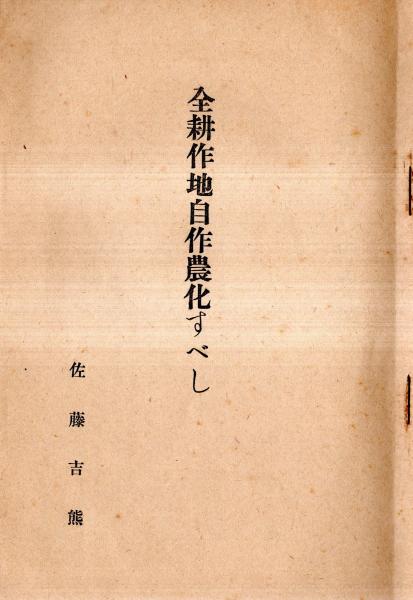 全耕作地自作農化すべし
佐藤吉熊